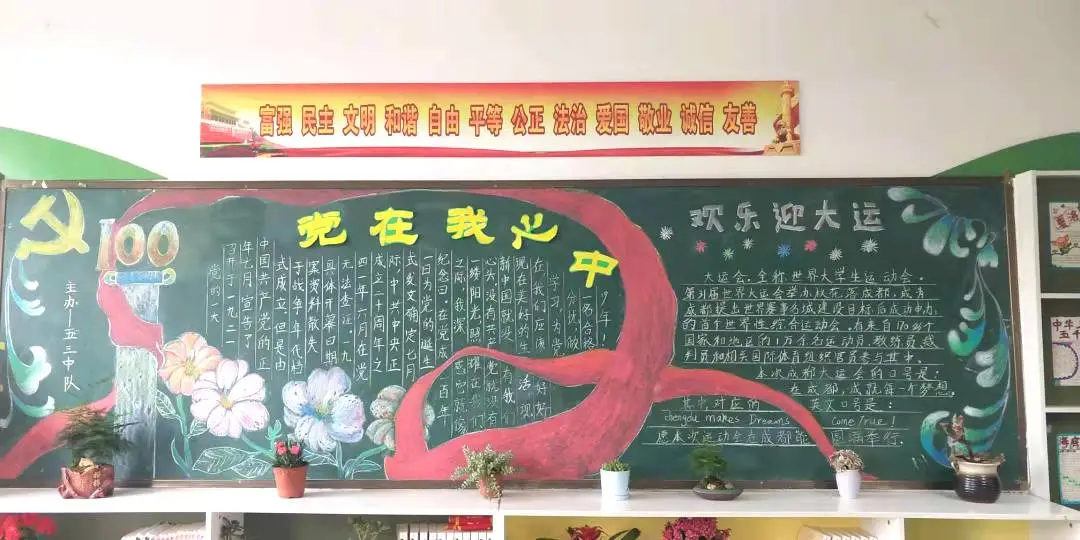 富强 民主 文明 和谐 自由 平等 公正 法治 爱国 敬业 诚信 友善
100
党在我心中
欢乐迎大运
主办—五三中队
党的一大
召开于一九二一
年七月宣告了
中国共产党的正
式成立,但是由
于战争年代档
案资料散失
具体开幕日期
无法查证,一九
四一年六月在党
成立二十周年之
际,中共中央正
式发文确定七月
一日为党的诞生
纪念日,在党成
一百年
之际,我深
一缕阳光照耀在我们
心头,没有共产党就没有
新中国就没有我们
现在美好的生活,现
在我们应该好好
学习,为党
一名合格
少年!
大运会,全称世界大学生运动会。
第31届世界大运会举办从花落成都,成青
的首个世界性综合运动会。有来自170多个
国家和地区的1万余名运动员、教练员、裁
判员和相关国际体育组织官员参与其中。
本次成都大运会的口号是:
在成都,成就每一个梦想。
其中对应的 英文口号是:
chengdu makes Dreams come true!
愿本次运动会在成都能 圆满举行。